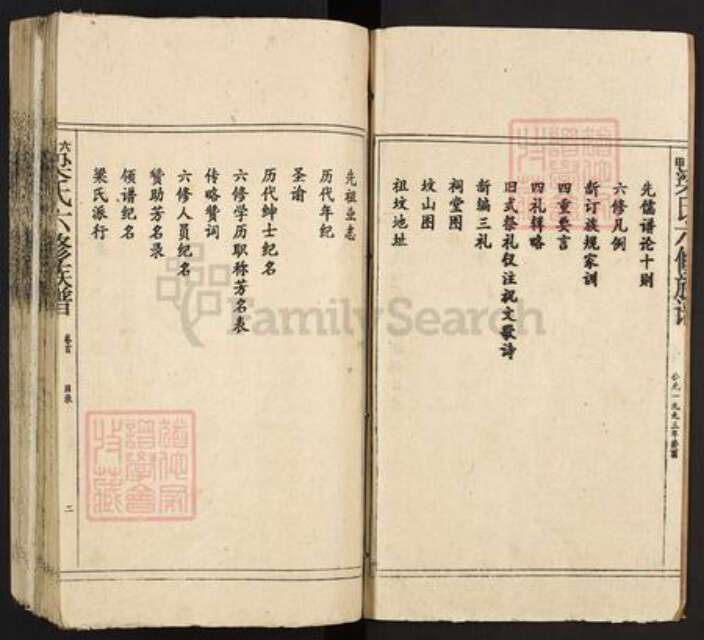 梁氏六修族谱
公元一九九三年癸酉
先儒谱论十则
六修凡例
新订族规家训
四重要言
四礼辑略
旧式祭礼仪注祝文歌诗
新编三礼
祠堂图
坟山图
祖坟地址
先祖业志
历代年纪
圣谕
历代绅士纪名
六修学历职称芳名表
传略赞词
六修人员纪名
赞助芳名录
领谱纪名
梁氏派行
梁氏六修族谱
卷首
目录
二
FamilySearch